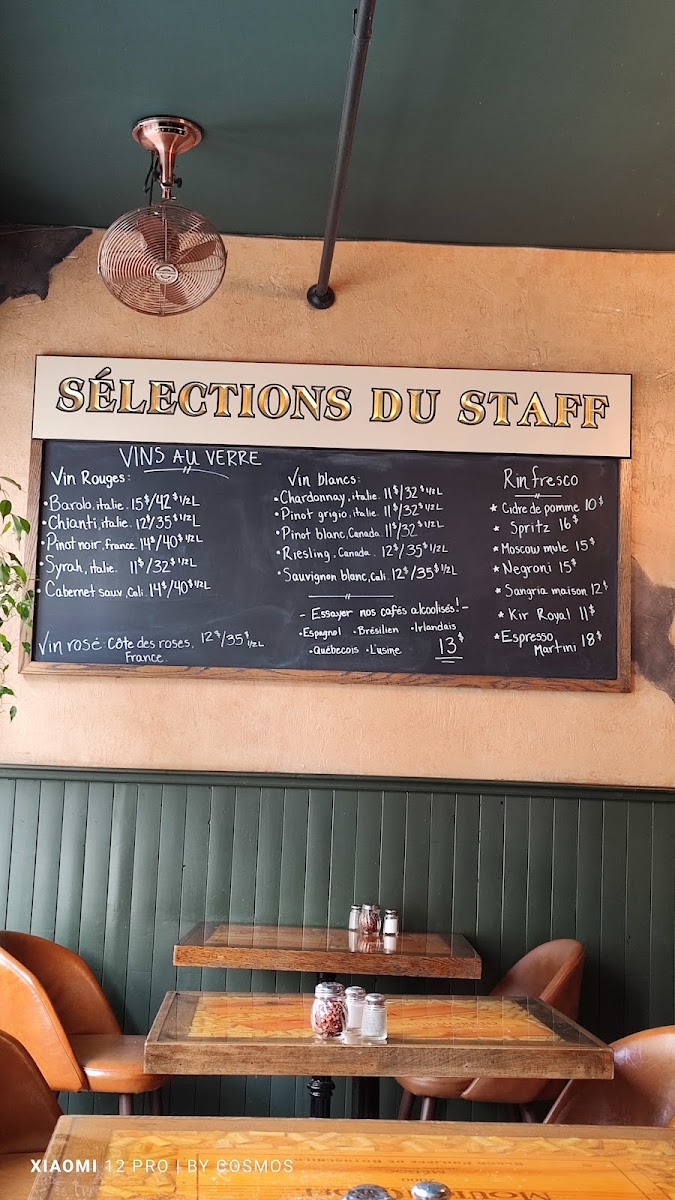 SÉLECTIONS DU STAFF
VINS AU VERRE
Vin Rouges:
• Barolo, italie. 15$/42$ 1/2 L
• Chianti, italie. 12$/35$ 1/2 L
• Pinot noir, france 14$/40$ 1/2 L
• Syrah, italie. 11$/32$ 1/2 L
• Cabernet sauv, Cali 14$/40$ 1/2 L
Vin rosé Côte des roses, 12$/35$ 1/2 L
France.
Vin blancs:
• Chardonnay, italie. 11$/32$ 1/2 L
• Pinot grigio, italie. 11$/32$ 1/2 L
• Pinot blanc, Canada 11$/32$ 1/2 L
• Riesling, Canada. 12$/35$ 1/2 L
• Sauvignon blanc, Cali. 12$/35$ 1/2 L
- Essayer nos cafés alcoolisés! -
• Espagnol • Brésilien • Irlandais
• Québecois • L'usine 13$
Rinfresco
* Cidre de pomme 10$
* Spritz 16$
* Moscow mule 15$
* Negroni 15$
* Sangria maison 12$
* Kir Royal 11$
* Espresso
Martini 18$
XIAOMI 12 PRO | BY COSMOS